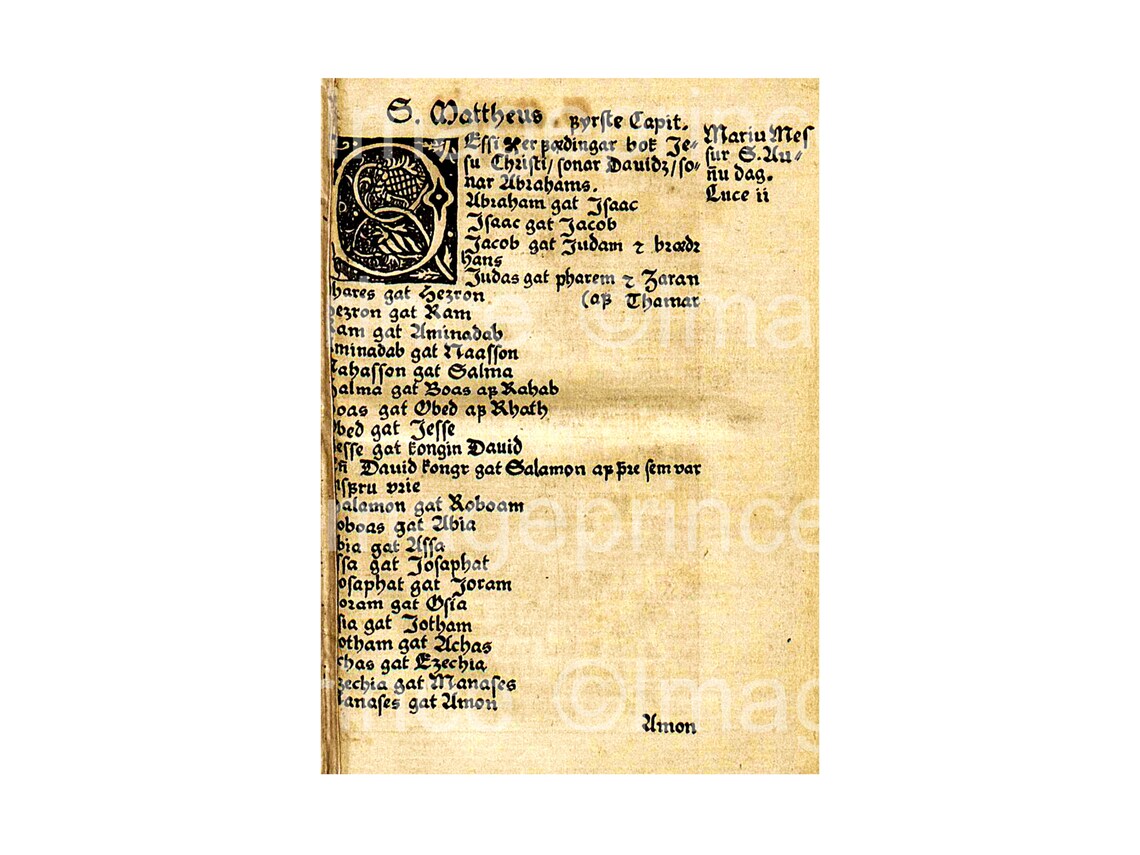 S. Mattheus ꝼyrſte Capit.
Eſſi er ꝼœdingar bok Je⸗
ſu Chriſti/ſonar Dauidz/ſo⸗
nar Abrahams.
Abraham gat Jſaac
Jſaac gat Jacob
Jacob gat Judam ⁊ brœdr
hans
Judas gat pharem ⁊ Zaran
(aꝼ Thamar
hares gat Hezron
ezron gat Ram
am gat Aminadab
minadab gat Naaſſon
ahaſſon gat Salma
alma gat Boas aꝼ Rahab
oas gat Obed aꝼ Rhath
bed gat Jeſſe
eſſe gat kongin Dauid
Dauid kongr gat Salamon aꝼ þre ſem var
vrie
alamon gat Roboam
oboas gat Abia
bia gat Aſſa
ſſa gat Joſaphat
oſaphat gat Joram
oram gat Oſia
ſia gat Jotham
otham gat Achas
chas gat Ezechia
zechia gat Manaſes
anaſes gat Amon
Amon
Mariu Meſ
ſur S. An⸗
nu dag.
Luce ii
©Imageprince